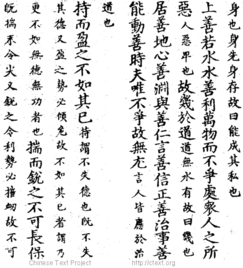 身也身先身存故曰能成其私也
上善若水水善利萬物而不爭處衆人之所
惡人惡卑也故幾於道道無水有故曰幾也
居善地心善淵與善仁言善信正善治事善
能動善時夫唯不爭故無尤言人皆應於治
道也
持而盈之不如其已持謂不失德也既不失
其德又盈之勢必傾危故不如其已者謂乃
更不如無德無功者也揣而銳之不可長保
既揣末令尖又銳之令利勢必摧衂故不可
Chinese Text Project
http://ctext.org